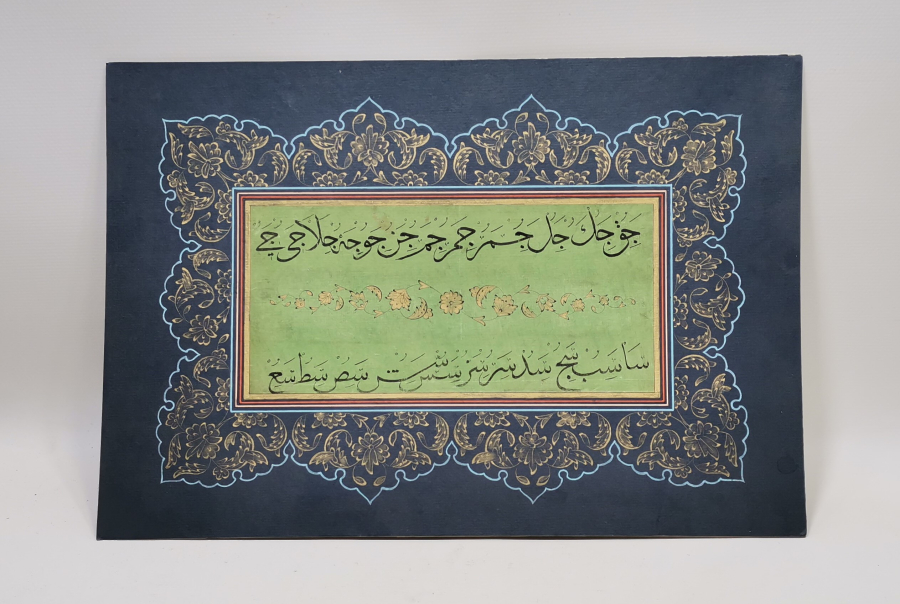 جق جك جل جم جمر جمر جن جو جه جلا جى جے
سا سب سج سد سر سز سس سش ست سص سط سع